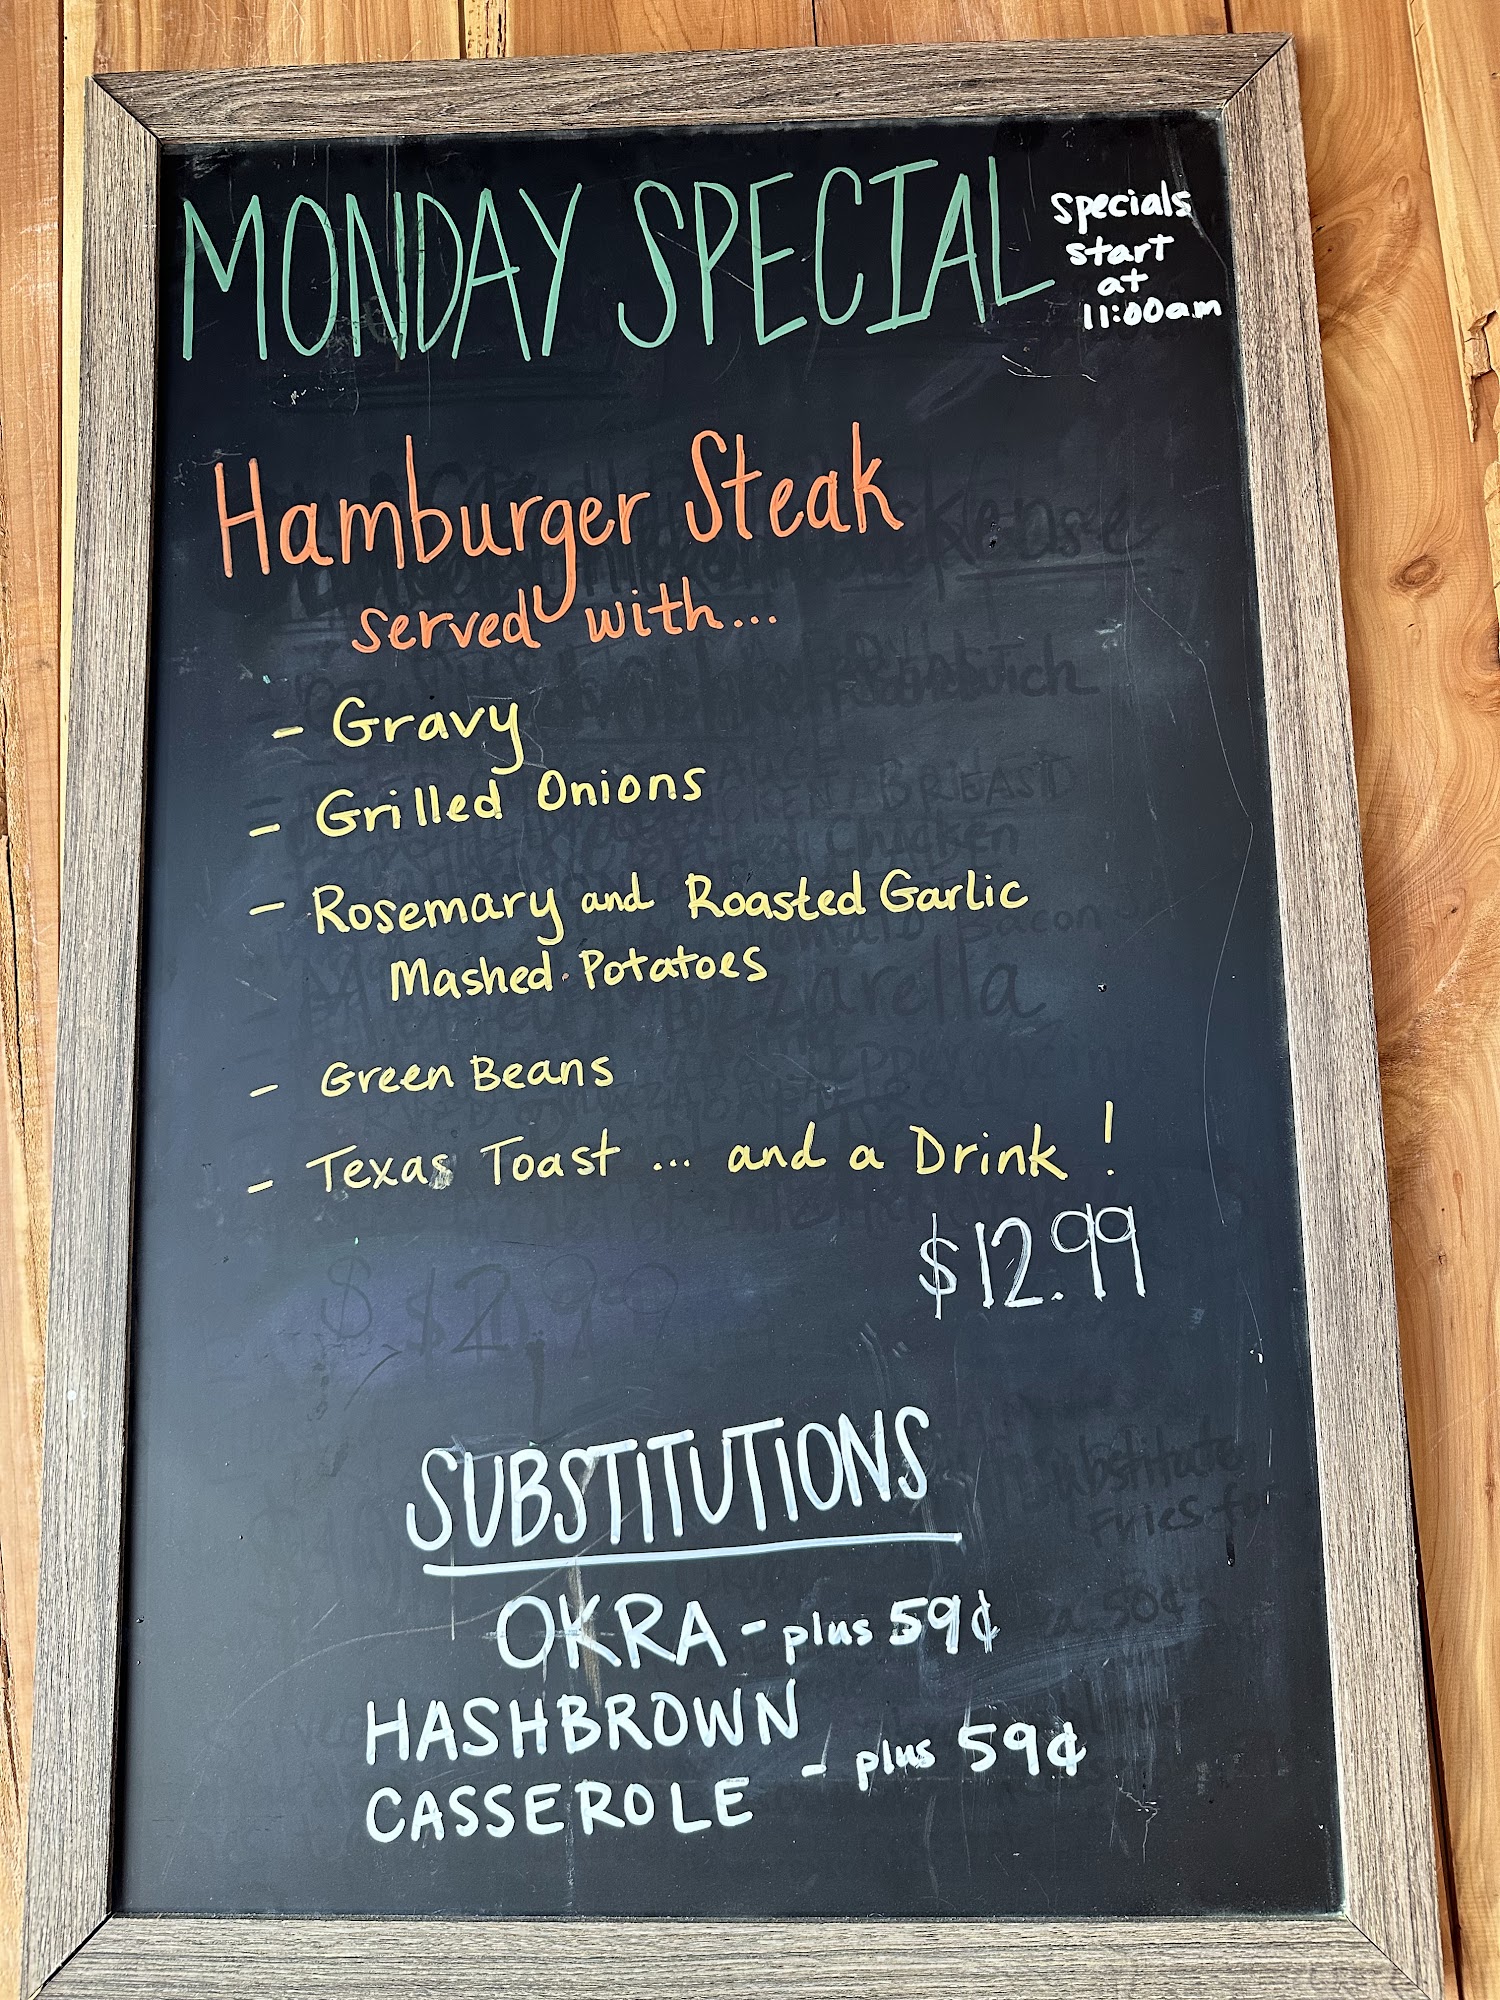 MONDAY SPECIAL
specials
start
at
11:00am
Hamburger Steak
served with...
- Gravy
- Grilled Onions
- Rosemary and Roasted Garlic
Mashed Potatoes
- Green Beans
- Texas Toast ... and a Drink !
$12.99
SUBSTITUTIONS
OKRA - plus 59¢
HASHBROWN
CASSEROLE - plus 59¢